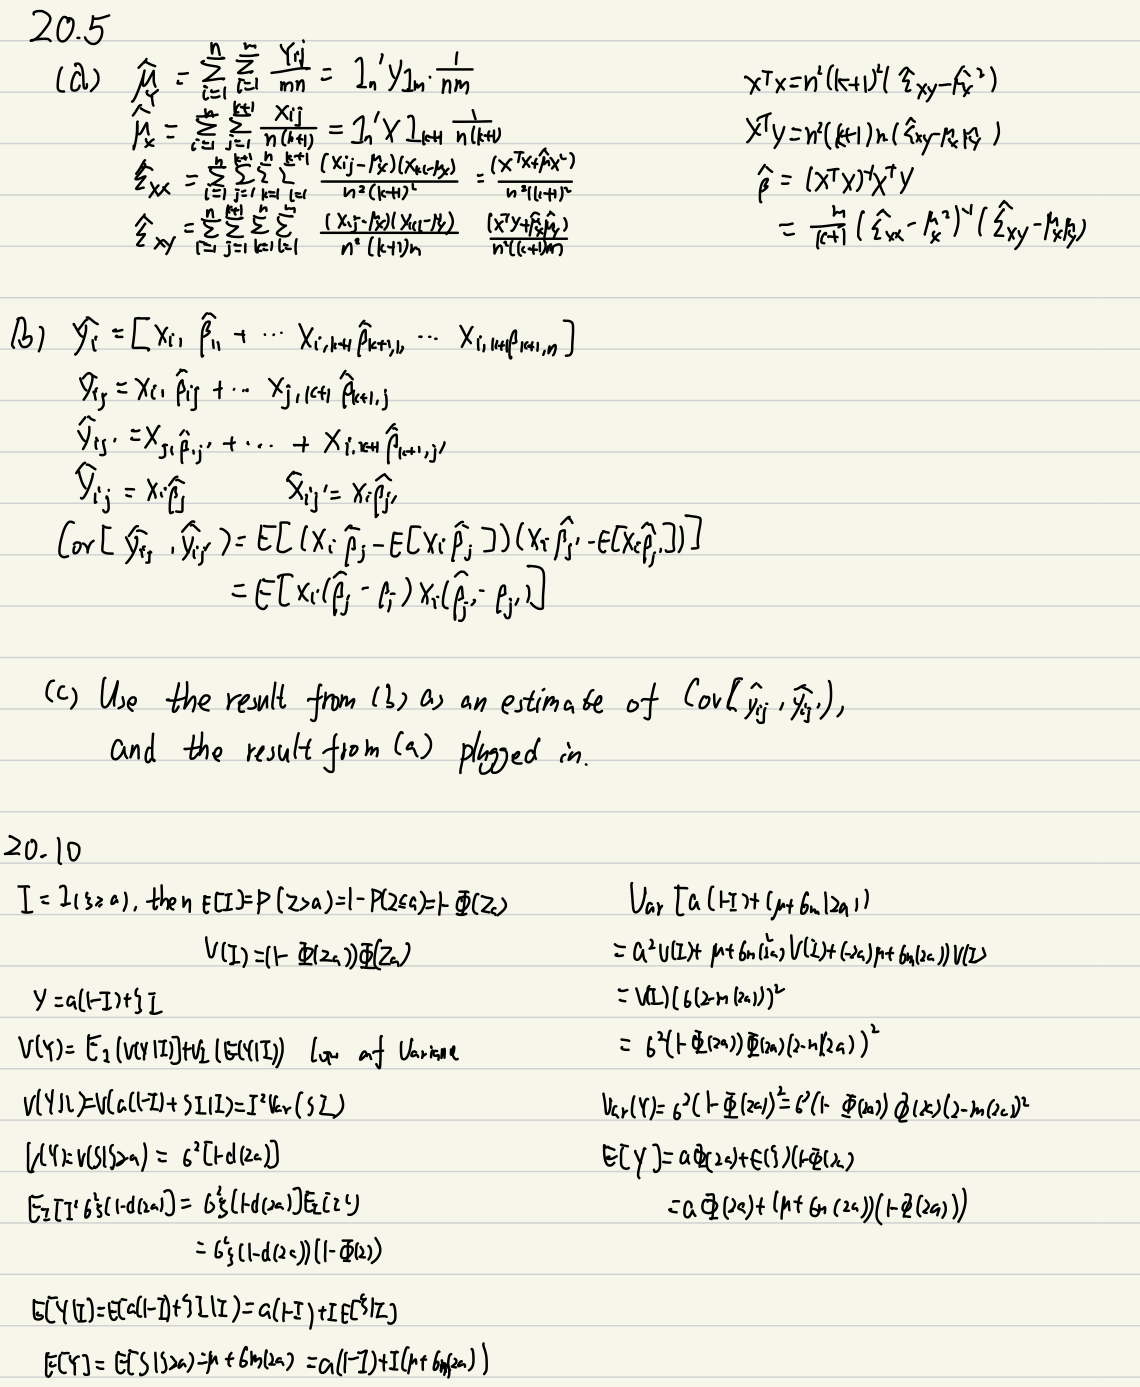 20.5
(a) μ̂_Y = Σ_{i=1}^{n} Σ_{i=1}^{m} Y_{ij}/mn = 1_n' Y 1_m · 1/nm
μ̂_x = Σ_{i=1}^{n} Σ_{j=1}^{k+1} X_{ij}/n(k+1) = 1_n' X 1_{k+1} 1/n(k+1)
Σ̂_{xx} = Σ_{i=1}^{n} Σ_{j=1}^{k+1} Σ_{k=1}^{n} Σ_{l=1}^{k+1} (X_{ij}-μ_x)(X_{kl}-μ_x)/n²(k+1)² = (X^T X+μ̂_x²)/n²(k+1)²
Σ̂_{xy} = Σ_{i=1}^{n} Σ_{j=1}^{k+1} Σ_{k=1}^{n} Σ_{l=1}^{m} (X_{ij}-μ_x)(X_{kl}-μ_y)/n²(k+1)n (X^T Y+μ̂_x μ̂_y)/n²(k+1)m
X^T X = n²(k+1)²(Σ̂_{xy}-μ̂_x²)
X^T Y = n²(k+1)n(Σ̂_{xy}-μ_x μ_y)
β̂ = (X^T X)^{-1} X^T Y
= n/(k+1) (Σ̂_{xx}-μ_x²)^{-1} (Σ̂_{xy}-μ_x μ_y)
(b) ŷ_i = [X_{i1} β̂_{11} + ⋯ X_{i,k+1} β̂_{k+1,1}, ⋯ X_{i,k+1} β_{k+1,n}]
ŷ_{ij} = X_{i1} β̂_{ij} + ⋯ X_{j,k+1} β̂_{k+1,j}
ŷ_{ij'} = X_{j1} β̂_{1j'} + ⋯ + X_{i,k+1} β̂_{k+1,j'}
ŷ_{ij} = X_i β̂_j X̂_{ij'} = X_i β̂_{j'}
Cov[ŷ_{ij}, ŷ_{ij'}) = E[(X_i β̂_j - E[X_i β̂_j])(X_i β̂_{j'} - E[X_i β̂_{j'}])]
= E[X_i(β̂_j - β_j) X_i(β̂_{j'} - β_{j'})]
(c) Use the result from (b) as an estimate of Cov[ŷ_{ij}, ŷ_{ij'}),
and the result from (a) plugged in.
20.10
I = 1(ξ≥a), then E[I] = P(Z>a) = 1-P(Z≤a) = 1-Φ(Z_a)
V(I) = (1-Φ(Z_a))Φ(Z_a)
Y = a(1-I)+ξI
V(Y) = E_I[V(Y|I)]+V_I(E(Y|I)) Law of Variance
V(Y|I) = V(a(1-I)+ξI|I) = I² Var(ξI)
V(Y) = V(ξ|ξ>a) = σ²[1-d(Z_a)]
E_I[I² σ_ξ²(1-d(Z_a)] = σ_ξ²[1-d(Z_a)]E_I[I²)
= σ_ξ²(1-d(Z_a))(1-Φ(Z))
E[Y|I] = E[a(1-I)+ξI|I) = a(1-I)+I E[ξ|I]
E[Y] = E[ξ|ξ>a) = μ+σm(Z_a) = a(1-I)+I(μ+σm(Z_a))
Var[a(1-I)+(μ+σm(Z_a))
= a²V(I)+μ+σm(Z_a)² V(I)+(-2a)μ+σm(Z_a))V(I)
= V(I)(σ(Z-m(Z_a))²
= σ²(1-Φ(Z_a))Φ(Z_a)(Z-m(Z_a))²
Var(Y) = σ²(1-Φ(Z_a))² = σ²(1-Φ(Z_a))Φ(Z_a)(Z-m(Z_a))²
E[Y] = aΦ(Z_a)+E(ξ)(1-Φ(Z_a)
= aΦ(Z_a)+(μ+σm(Z_a))(1-Φ(Z_a))